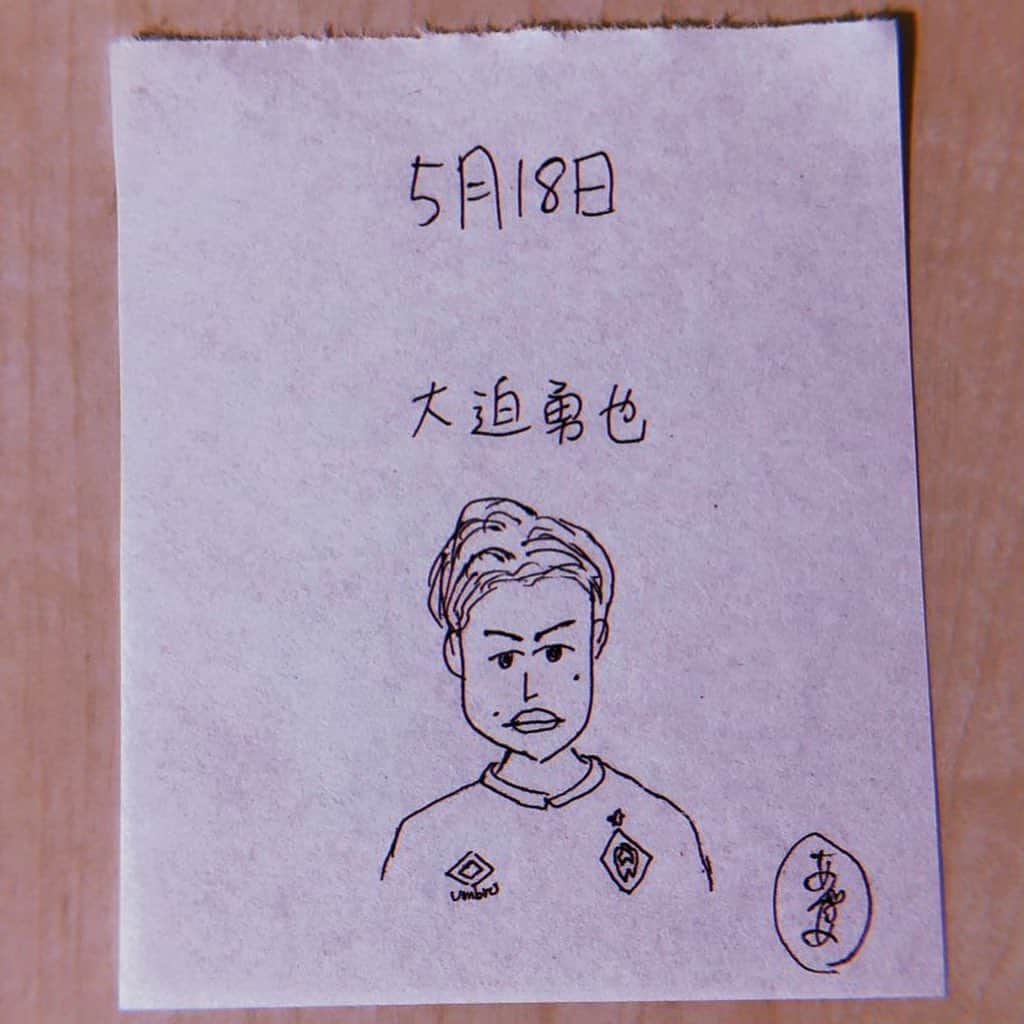 5月18日
大迫勇也
umbro
W